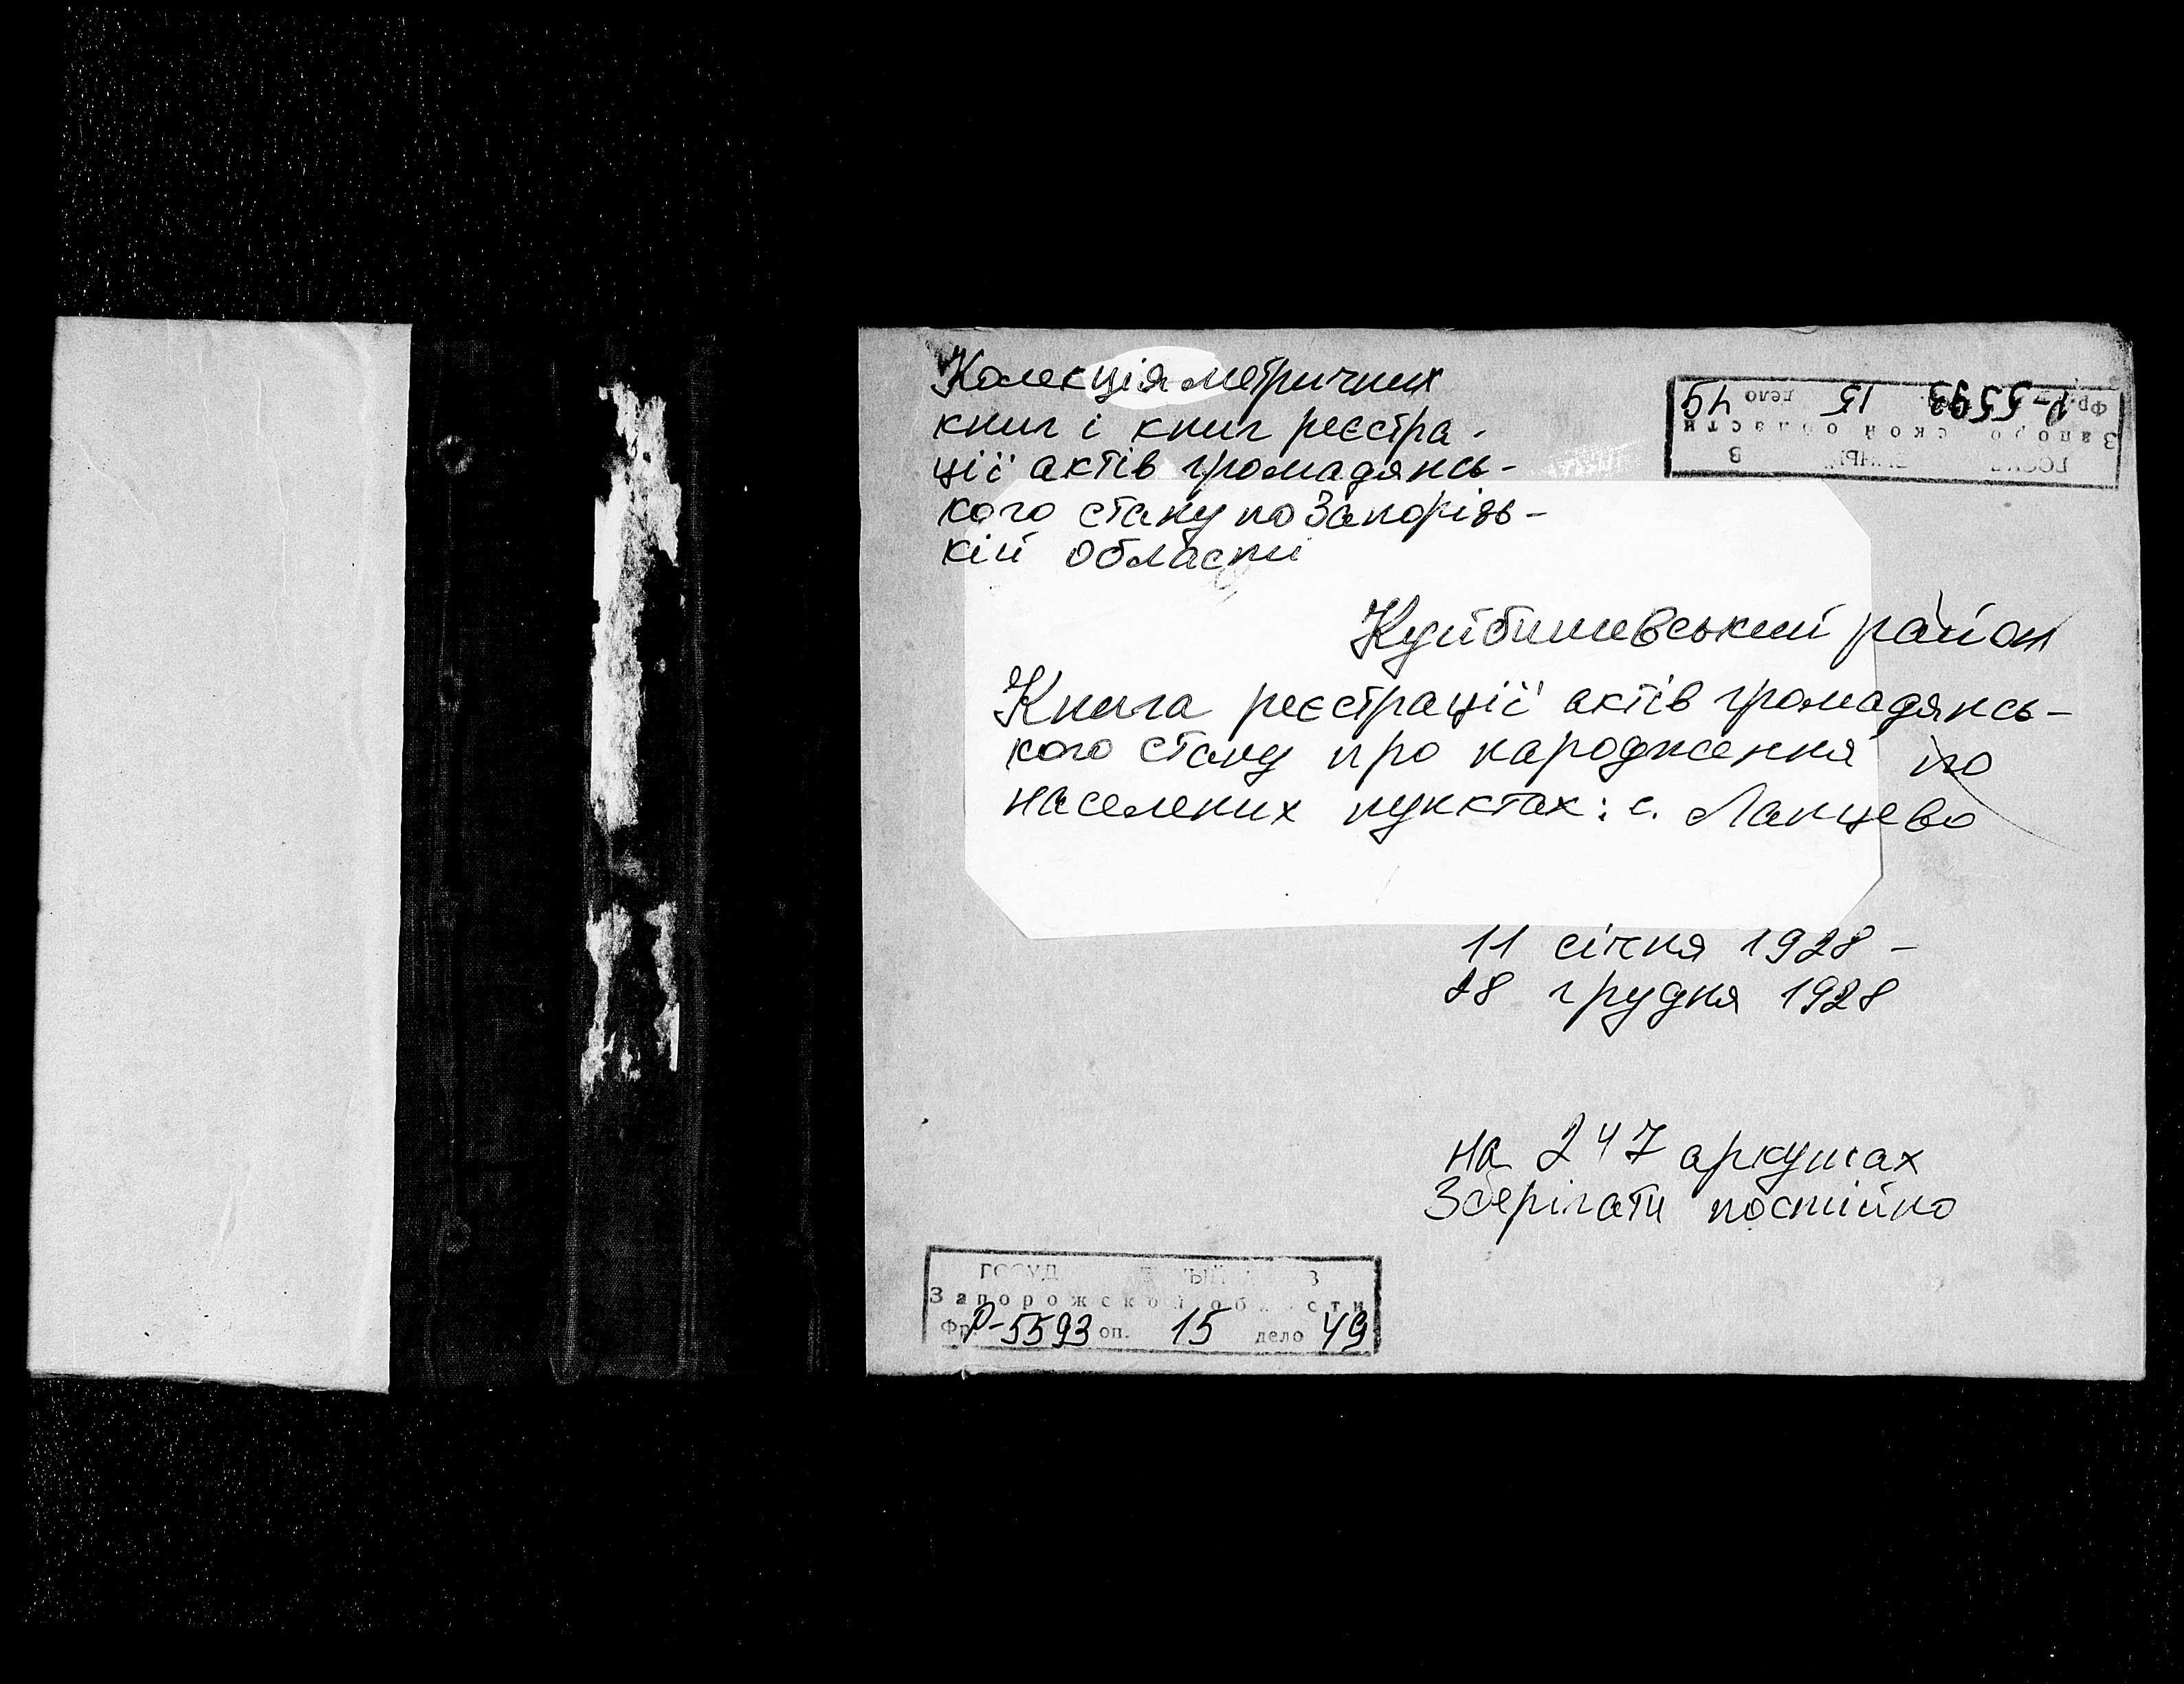 Колекція метричних
книг і книг реєстра-
ції актів громадянсь-
кого стану по Запорізь-
кій області
Р-5593 15 дело 49
Куйбишевський район
Книга реєстрації актів громадянсь-
кого стану про народження по
населених пунктах: с. Ланцево
11 січня 1928 -
28 грудня 1928
на 247 аркушах
Зберігати постійно
Запорожской области
Фр. Р-5593 оп. 15 дело 49